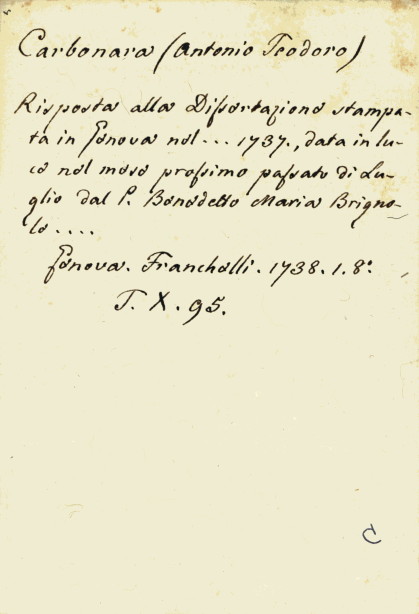 Carbonara (Antonio Teodoro)
Risposta alla Dissertazione stampa-
ta in Genova nel ... 1737., data in lu-
ce nel mese prossimo passato di Lu-
glio dal P. Benedetto Maria Brigno-
le ....
Genova. Franchelli. 1738. 1. 8°.
T. X. 95.
C